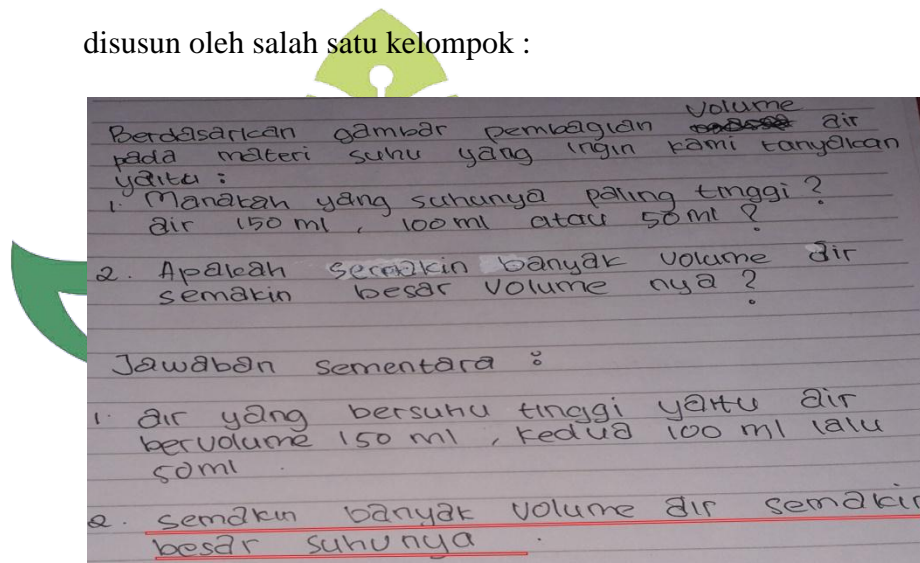 disusun oleh salah satu kelompok :
volume
Berdasarkan gambar pembagian air
pada materi suhu yang ingin kami tanyakan
yaitu :
1. Manakah yang suhunya paling tinggi ?
air 150 ml , 100 ml atau 50 ml ?
2. Apakah semakin banyak volume air
semakin besar volume nya ?
Jawaban sementara :
1. air yang bersuhu tinggi yaitu air
bervolume 150 ml , kedua 100 ml lalu
50ml .
2. semakin banyak volume air semakin
besar suhu nya .